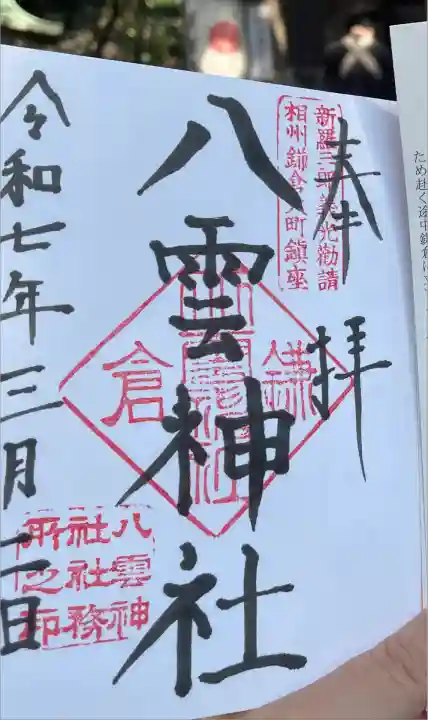 新羅三郎義光勧請
相州鎌倉大町鎮座
奉拝
八雲神社
鎌倉
令和七年三月二日
八雲神
社社務
所之印
ため赴く途中鎌倉に